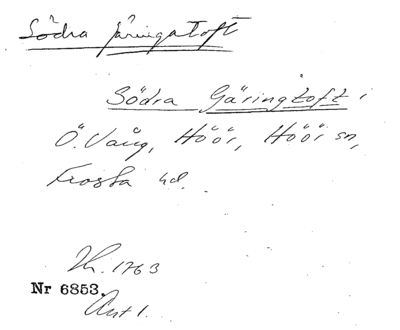 Södra Järingatoft
Södra Gäringtoft i
Ö. Vång, Höör, Höör sn,
Frosta hd.
Kr. 1763
Nr 6853.
Ant 1.